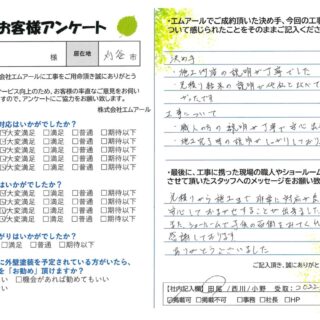 お客様アンケート
様
居在地
刈谷市
株式会社エムアールに工事をご用命頂き誠にありがとう
サービス向上のため、お客様の率直なご意見をお伺い
すので、アンケートにご協力をお願い致します。
株式会社エムアール
対応はいかがでしたか?
大変満足 □満足 □普通 □期待以下
大変満足 □満足 □普通 □期待以下
大変満足 □満足 □普通 □期待以下
はいかがでしたか?
大変満足 □満足 □普通 □期待以下
大変満足 □満足 □普通 □期待以下
大変満足 □満足 □普通 □期待以下
がりはいかがでしたか?
大変満足 □満足 □普通 □期待以下
に外壁塗装を予定されている方がいたら、
を「お勧め」頂けますか?
い □機会があれば勧めてもいい
い
・エムアールでご成約頂いた決め手、今回の工事
ついて感じられたことをそのままご記入くださ
決め手
・施工内容の説明が丁寧でした
・見積り結果の説明が
かったです
工事について
・職人の方の説明が丁寧で安心
・施工完了時の説明がしっかりしており
・最後に、工事に携った現場の職人やショールーム
させて頂いたスタッフへのメッセージをお願い致
見積りから施工まで丁寧に対応
安心しておまかせすることが出来ました
また、ショールームで子供の面倒をみてくれ
感謝しております
ありがとうございました
ご記入頂き、誠にありがと
【社内記入欄】 田尾/西川/小野 受取:2022
掲載可 □掲載不可 □事務 □社長 □HP